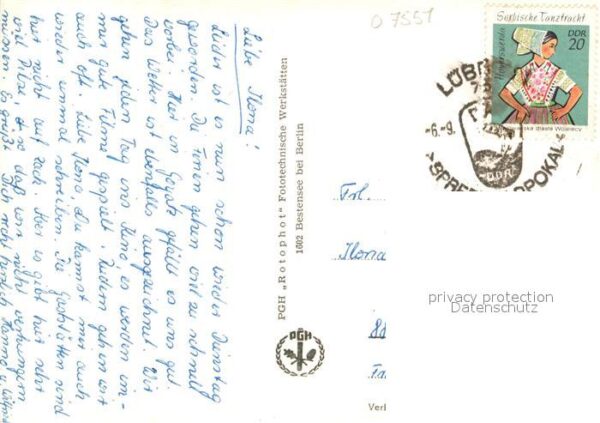 O 7551
Liebe Ilona!
Leider ist es nun schon wieder Dienstag
geworden. Die Ferien gehen viel zu schnell
vorbei. Hier in Goyatz gefällt es uns gut.
Das Wetter ist ebenfalls ausgezeichnet. Wir
gehen jeden Tag und Kino es werden im-
mer gute Filme gespielt. Zudem gehen wir
auch oft. Liebe Ilona, Du kannst mir auch
wieder einmal schreiben. Die Gaststätten sind
hier nicht auf Zack. Aber es gibt hier sehr
viel Pilze so daß wir nicht verhungern
müssen. Es grüßt Dich recht herzlich Hanna u. Wilfried
PGH „Rotophot“ Fototechnische Werkstätten
1602 Bestensee bei Berlin
PGH
Sorbische Tanztracht
Hoyerswerda
DDR
20
LÜBB
-6.-9.
DDR
Frl.
Ilona
privacy protection
Datenschutz